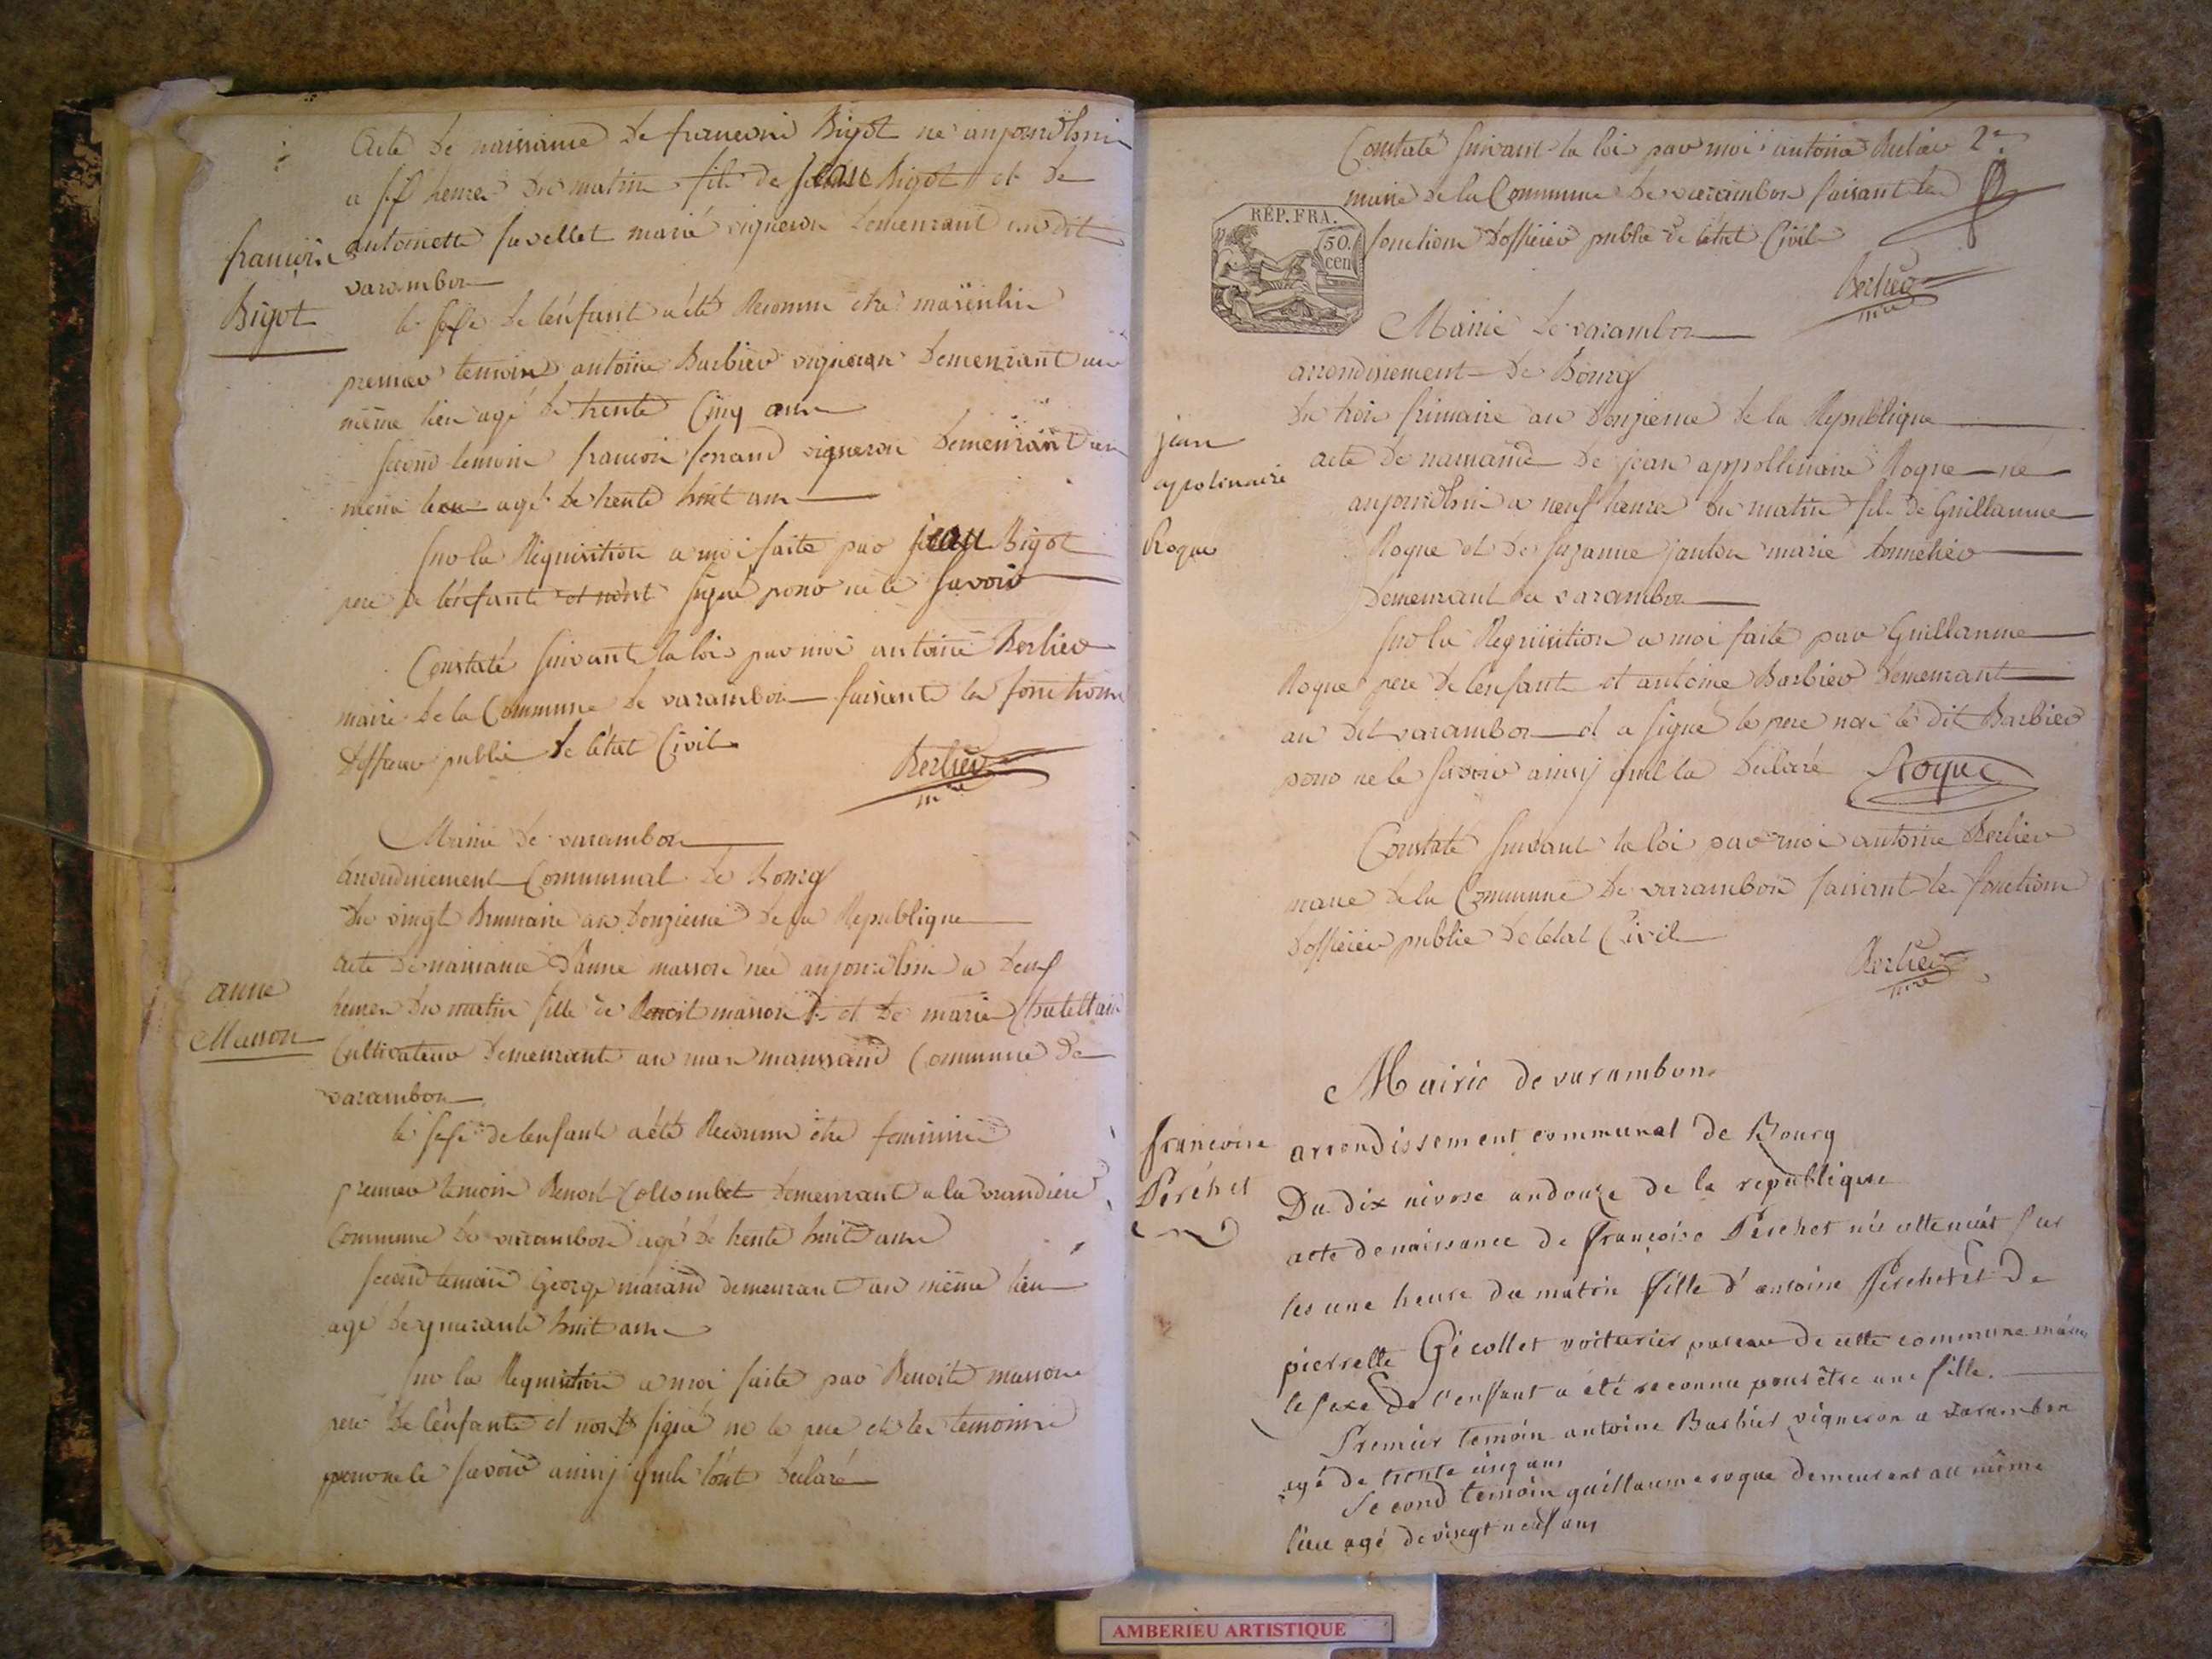 acte de naissance de francois Bigot né aujourdhui
a six heures du matin fils de jean Bigot et de
antoinette favellet marié vigneron demeurant au dit
varambon
francois
Bigot
le sexe de lenfant a été Reconnu etre masculin
premier temoins antoine Barbier vigneron demeurant au
même lieu agé de trente Cinq ans
second temoin francois ferrand vigneron demeurant au
même lieu agé de trente huit ans
sur la Requisition a moi faite par jean Bigot
pere de lenfant et n'ont signé pour ne le savoir
Constaté suivant la loi par moi antoine Berlier
maire de la Commune de varambon faisant les fonctions
dofficier public de létat Civil
Berlier
mre
Mairie de varambon
arrondissement Communal de Bourg
du vingt Brumaire an douzieme de la Republique
acte de naissance d'anne masson née aujourdhui a deux
heures du matin fille de Benoit masson et de marie Chatellain
Cultivateur demeurant au mas maussand Commune de
varambon
anne
Masson
le sexe de lenfant a été Reconnu etre feminin
premier temoin Benoit Collombet demeurant a la
Commune de varambon agé de trente huit ans
second temoin George marand demeurant au même lieu
agé de quarante huit ans
sur la Requisition a moi faite par Benoit masson
pere de lenfant et n'ont signé ne le pere et les temoins
pour ne le savoir ainsy quils lont declaré
Constaté suivant la loi par moi antoine Berlier 2e
maire de la Commune de varambon faisant les
fonctions dofficier public de létat Civil
Berlier
mre
RÉP. FRA.
50.
cen
Mairie de varambon
arrondissement de Bourg
du trois frimaire an douzieme de la Republique
jean
apolinaire
Roque
acte de naissance de jean appollinaire Roque né
aujourdhui a neuf heures du matin fils de Guillaume
Roque et de suzanne janton marié tonnelier
demeurant a varambon
sur la Requisition a moi faite par Guillaume
Roque pere de lenfant et antoine Barbier demeurant
au dit varambon et a signé le pere non le dit Barbier
pour ne le savoir ainsy quil la declaré Roque
Constaté suivant la loi par moi antoine Berlier
maire de la Commune de varambon faisant les fonctions
dofficier public de létat Civil
Berlier
mre
Mairie de varambon
arrondissement communal de Bourg
Du dix nivose an douze de la republique
francoise
Perchet
acte de naissance de françoise Perchet née cette nuit sur
les une heure du matin fille d'antoine Perchet et De
pierrette Gécollet voiturier de cette commune
le sexe de l'enffant a été reconnu pour être une fille.
Premier temoin antoine Barbier vigneron a varambon
agé de trente cinq ans
second temoin guillaume roque demeurant au même
lieu agé de vingt neuf ans
AMBERIEU ARTISTIQUE